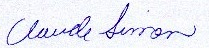 Claude Simon